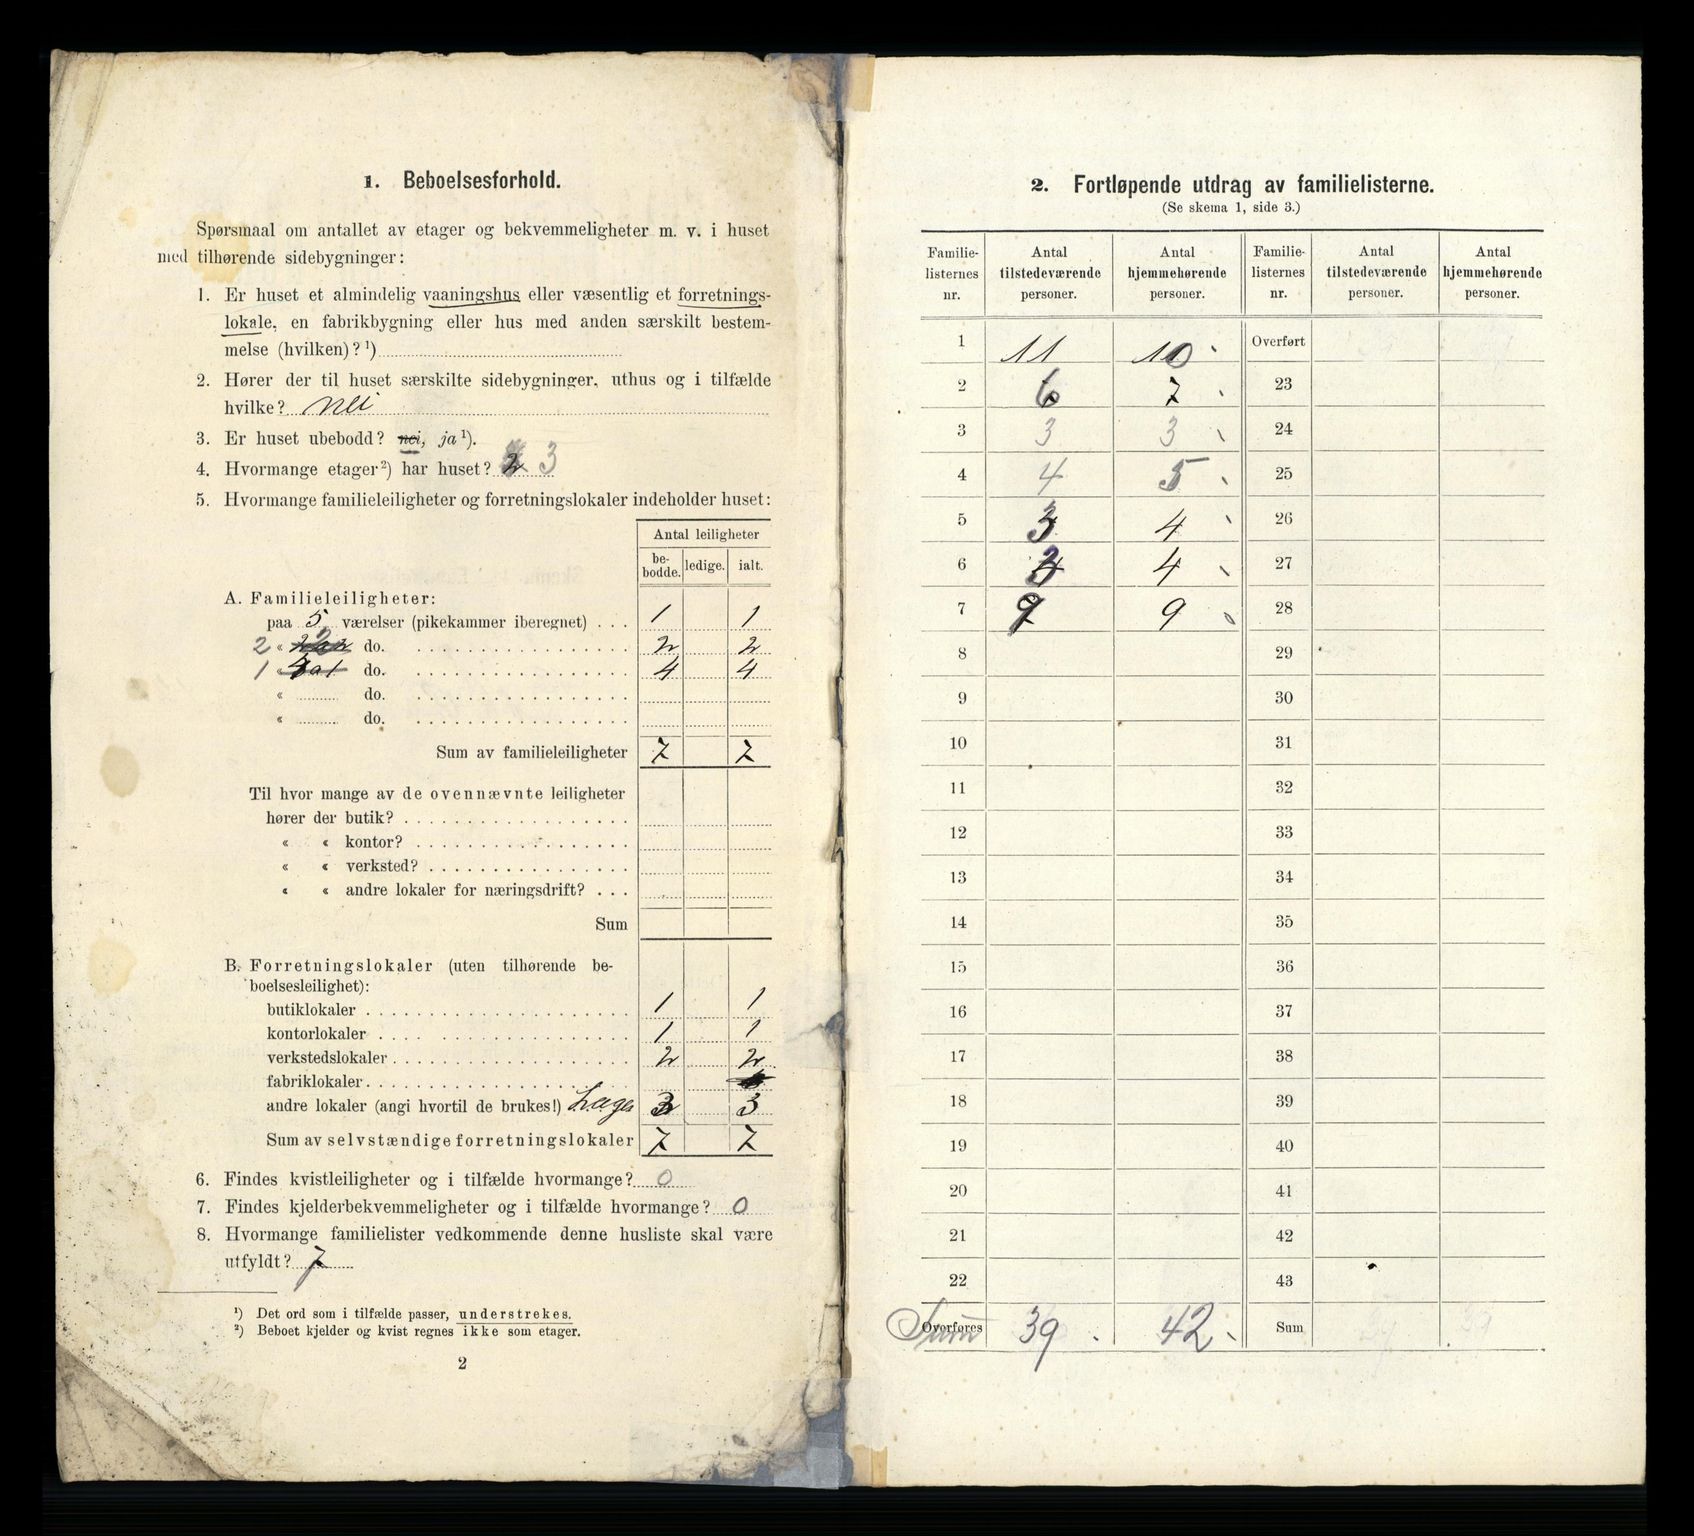 1. Beboelsesforhold.
Spørsmaal om antallet av etager og bekvemmeligheter m. v. i huset
med tilhørende sidebygninger:
1. Er huset et almindelig vaaningshus eller væsentlig et forretnings-
lokale, en fabrikbygning eller hus med anden særskilt bestem-
melse (hvilken)? ¹)
2. Hører der til huset særskilte sidebygninger, uthus og i tilfælde
hvilke? nei
3. Er huset ubebodd? nei, ja ¹).
4. Hvormange etager ²) har huset? 2 3
5. Hvormange familieleiligheter og forretningslokaler indeholder huset:
Antal leiligheter
be-
bodde. ledige. ialt.
A. Familieleiligheter:
paa 5 værelser (pikekammer iberegnet) . . . 1 1
2 « do. 2 2
1 « do. 4 4
« do.
« do.
Sum av familieleiligheter 7 7
Til hvor mange av de ovennævnte leiligheter
hører der butik?
« « kontor?
« « verksted?
« « andre lokaler for næringsdrift? . . .
Sum
B. Forretningslokaler (uten tilhørende be-
boelsesleilighet):
butiklokaler 1 1
kontorlokaler 1 1
verkstedslokaler 2 2
fabriklokaler
andre lokaler (angi hvortil de brukes!) Lager 3 3
Sum av selvstændige forretningslokaler 7 7
6. Findes kvistleiligheter og i tilfælde hvormange? 0
7. Findes kjelderbekvemmeligheter og i tilfælde hvormange? 0
8. Hvormange familielister vedkommende denne husliste skal være
utfyldt? 7
¹) Det ord som i tilfælde passer, understrekes.
²) Beboet kjelder og kvist regnes ikke som etager.
2
2. Fortløpende utdrag av familielisterne.
(Se skema 1, side 3.)
Familie- Antal Antal Familie- Antal Antal
listernes tilstedeværende hjemmehørende listernes tilstedeværende hjemmehørende
nr. personer. personer. nr. personer. personer.
1 11 10 Overført
2 6 7 23
3 3 3 24
4 4 5 25
5 3 4 26
6 3 4 27
7 9 9 28
8 29
9 30
10 31
11 32
12 33
13 34
14 35
15 36
16 37
17 38
18 39
19 40
20 41
21 42
22 43
Sum Overføres 39 42 Sum 39